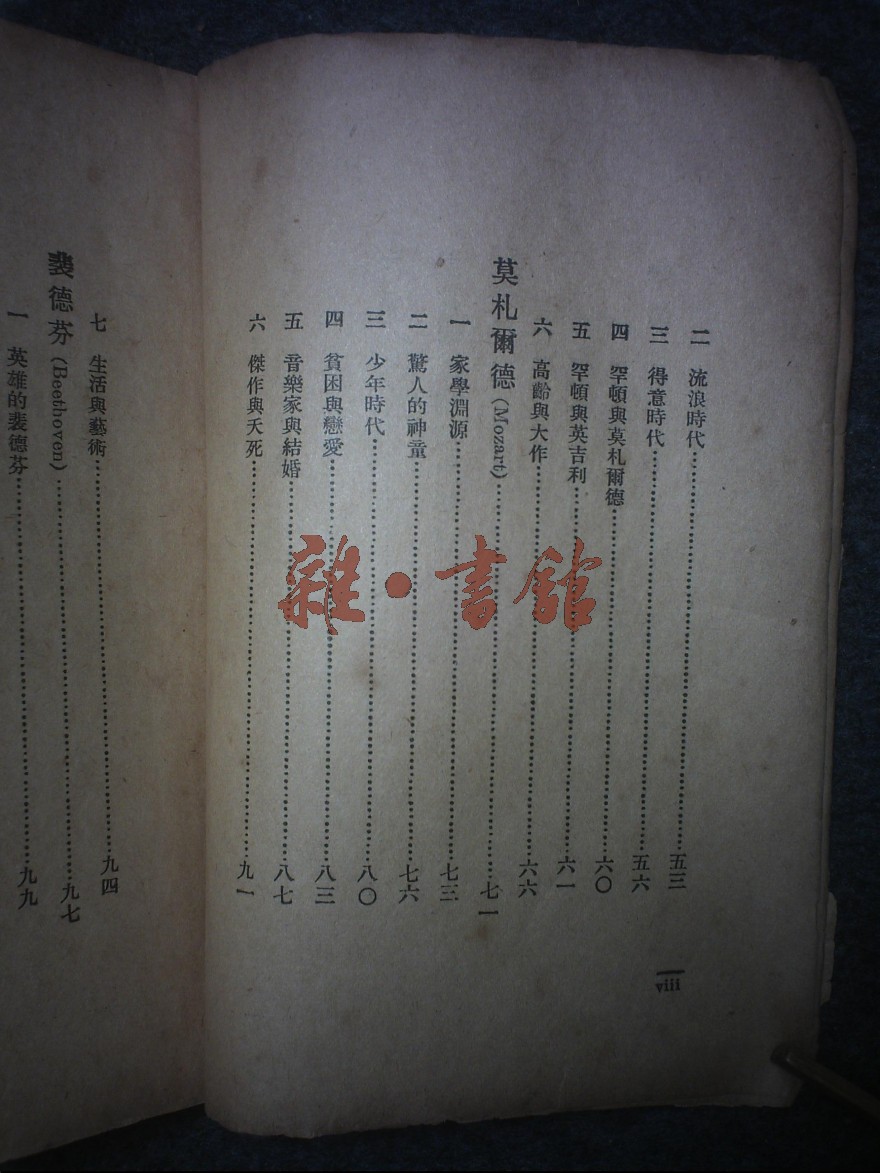 二 流浪時代……五三
三 得意時代……五六
四 罕頓與莫札爾德……六〇
五 罕頓與英吉利……六一
六 高齡與大作……六六
莫札爾德(Mozart)……七一
一 家學淵源……七三
二 驚人的神童……七六
三 少年時代……八〇
四 貧困與戀愛……八三
五 音樂家與結婚……八七
六 傑作與夭死……九一
viii
七 生活與藝術……九四
裴德芬(Beethoven)……九七
一 英雄的裴德芬……九九
雜·書館